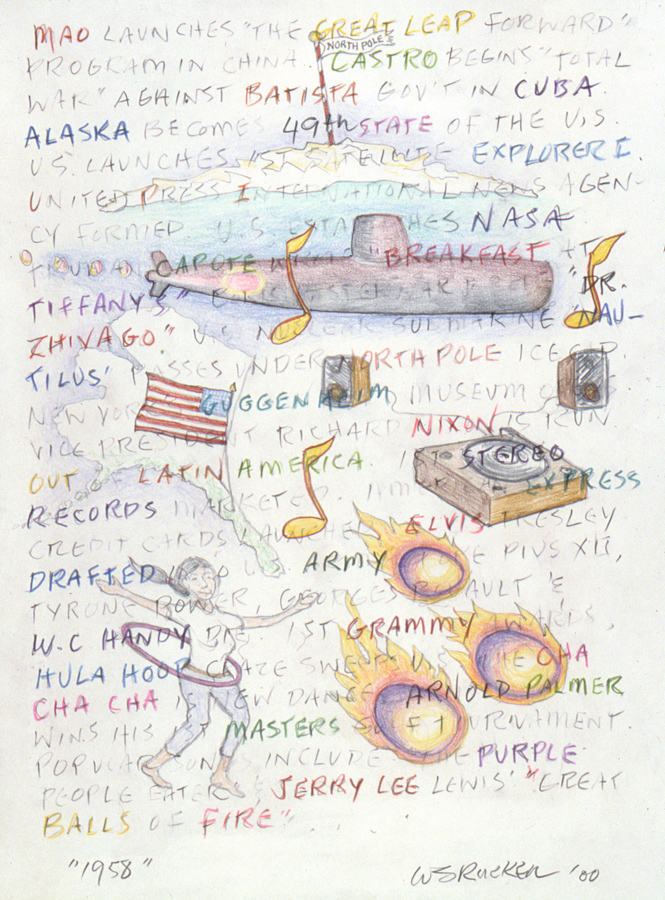 MAO LAUNCHES "THE GREAT LEAP FORWARD"
NORTH POLE
PROGRAM IN CHINA. CASTRO BEGINS "TOTAL
WAR" AGAINST BATISTA GOV'T IN CUBA.
ALASKA BECOMES 49th STATE OF THE U.S.
U.S. LAUNCHES 1ST SATELLITE EXPLORER I.
UNITED PRESS INTERNATIONAL NEWS AGEN-
CY FORMED. U.S. ESTABLISHES NASA.
TRUMAN CAPOTE "BREAKFAST AT
TIFFANY'S" "DR.
ZHIVAGO" U.S. NUCLEAR SUBMARINE 'NAU-
TILUS' PASSES UNDER NORTH POLE ICE
NEW YORK GUGGENHEIM MUSEUM
VICE PRESIDENT RICHARD NIXON IS RUN
OUT OF LATIN AMERICA. STEREO
RECORDS MARKETED. EXPRESS
CREDIT CARDS LAUNCHED ELVIS PRESLEY
DRAFTED INTO U.S. ARMY PIUS XII,
TYRONE POWER, GEORGES &
W.C HANDY DIE. 1ST GRAMMY AWARDS,
HULA HOOP CRAZE SWEEPS U.S. THE CHA
CHA CHA IS NEW DANCE. ARNOLD PALMER
WINS HIS 1ST MASTERS GOLF TOURNAMENT.
POPULAR SONGS INCLUDE "THE PURPLE
PEOPLE EATER" & JERRY LEE LEWIS' "GREAT
BALLS OF FIRE"
"1958" WSRUCKER '00